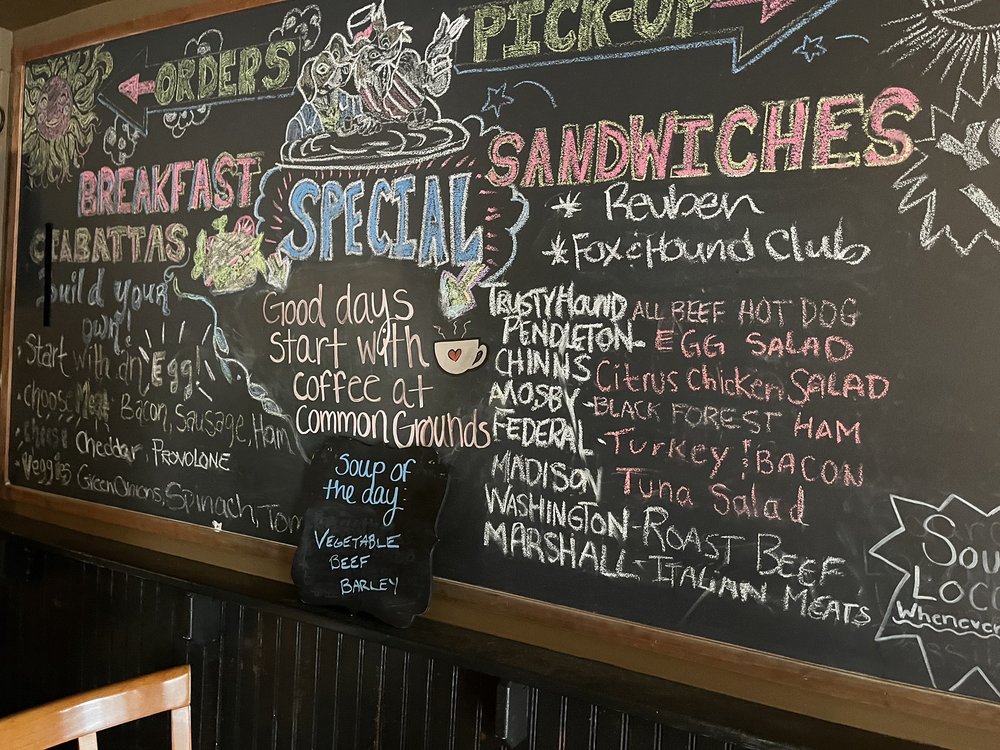 ORDERS
PICK-UP
BREAKFAST
CIABATTAS
Build your
own!
• Start with an Egg!
• choose Meat Bacon, Sausage, Ham
• cheese Cheddar, PROVOLONE
• Veggies Green Onions, Spinach, Tom
SPECIAL
Good days
start with
coffee at
Common Grounds
Soup of
the day:
VEGETABLE
BEEF
BARLEY
SANDWICHES
* Reuben
* Fox & Hound Club
TRUSTY HOUND ALL BEEF HOT DOG
PENDLETON- EGG SALAD
CHINNS Citrus Chicken SALAD
MOSBY -BLACK FOREST HAM
FEDERAL - Turkey & BACON
MADISON Tuna Salad
WASHINGTON - ROAST BEEF
MARSHALL - ITALIAN MEATS
Sou
LOC
Whenever